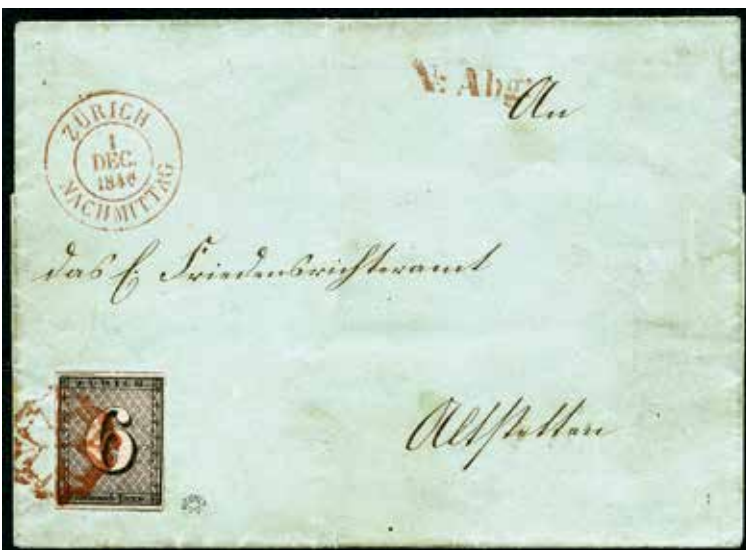 ZÜRICH
1
DEC.
1846
NACHMITTAG
N: Abg:
An
das E. Friedensrichteramt
Altstetten
ZÜRICH
6